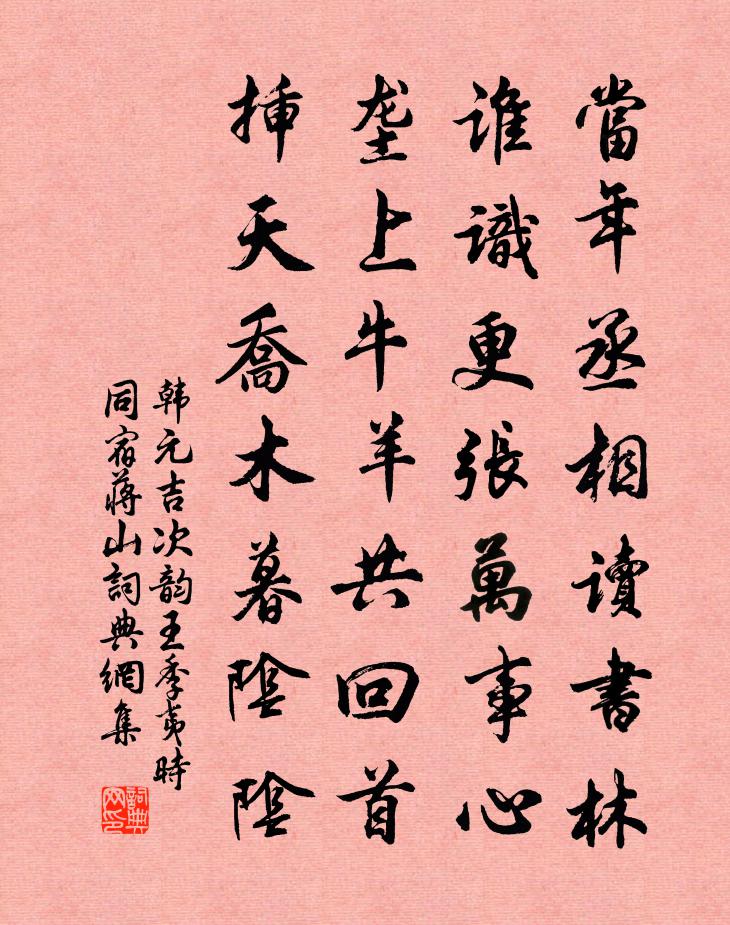 當年丞相讀書林
誰識更張萬事心
垄上牛羊共回首
挿天喬木暮陰陰
韩元吉次韵王季夷時
同宿蔣山詞典網集
詞典
网印